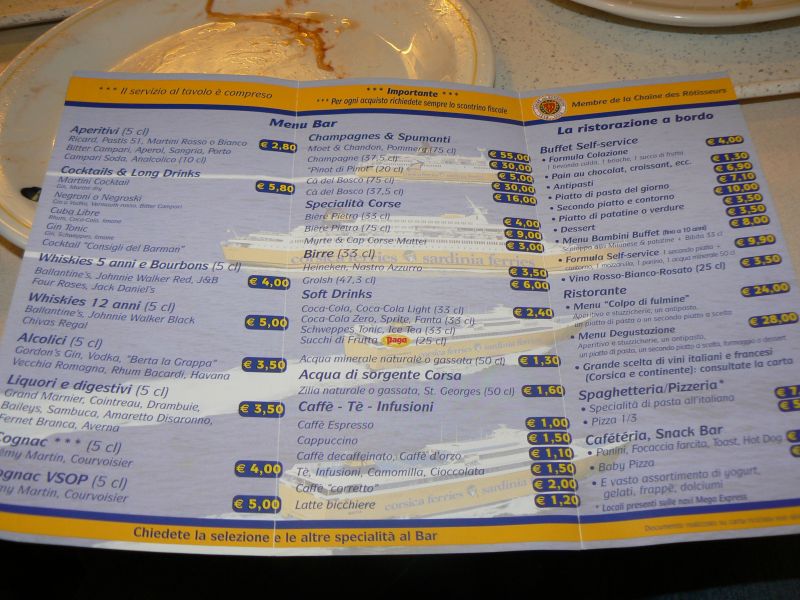 *** Il servizio al tavolo è compreso
Menu Bar
Aperitivi (5 cl)
Ricard, Pastis 51, Martini Rosso o Bianco
Bitter Campari, Aperol, Sangria, Porto
Campari Soda, Analcolico (10 cl)
€ 2,80
Cocktails & Long Drinks
Martini Cocktail
Gin, Martini dry
€ 5,80
Negroni o Negroski
Gin o Vodka, Vermouth rosso, Bitter Campari
Cuba Libre
Rhum, Coca-Cola, limone
Gin Tonic
Gin, Schweppes, limone
Cocktail "Consigli del Barman"
Whiskies 5 anni e Bourbons (5 cl)
Ballantine's, Johnnie Walker Red, J&B
Four Roses, Jack Daniel's
€ 4,00
Whiskies 12 anni (5 cl)
Ballantine's, Johnnie Walker Black
Chivas Regal
€ 5,00
Alcolici (5 cl)
Gordon's Gin, Vodka, "Berta la Grappa"
Vecchia Romagna, Rhum Bacardi, Havana
€ 3,50
Liquori e digestivi (5 cl)
Grand Marnier, Cointreau, Drambuie,
Baileys, Sambuca, Amaretto Disaronno,
Fernet Branca, Averna
€ 3,50
Cognac *** (5 cl)
émy Martin, Courvoisier
€ 4,00
ognac VSOP (5 cl)
my Martin, Courvoisier
€ 5,00
Chiedete la selezione e le altre specialità al Bar
*** Importante ***
*** Per ogni acquisto richiedete sempre lo scontrino fiscale
Champagnes & Spumanti
Moet & Chandon, Pommery (75 cl) € 55,00
Champagne (37,5 cl) € 30,00
"Pinot di Pinot" (20 cl) € 5,00
Cà del Bosco (75 cl) € 30,00
Cà del Bosco (37,5 cl) € 16,00
Specialità Corse
Bière Pietra (33 cl) € 4,00
Bière Pietra (75 cl) € 9,00
Myrte & Cap Corse Mattei € 3,00
Birre (33 cl)
Heineken, Nastro Azzurro € 3,50
Grolsh (47,3 cl) € 6,00
Soft Drinks
Coca-Cola, Coca-Cola Light (33 cl) € 2,40
Coca-Cola Zero, Sprite, Fanta (33 cl)
Schweppes Tonic, Ice Tea (33 cl)
Succhi di Frutta Pago (25 cl)
Acqua minerale naturale o gassata (50 cl) € 1,30
Acqua di sorgente Corsa
Zilia naturale o gassata, St. Georges (50 cl) € 1,60
Caffè - Tè - Infusioni
Caffè Espresso € 1,00
Cappuccino € 1,50
Caffè decaffeinato, Caffè d'orzo € 1,10
Tè, Infusioni, Camomilla, Cioccolata € 1,50
Caffè "corretto" € 2,00
Latte bicchiere € 1,20
corsica ferries sardinia ferries
corsica ferries sardinia
Membre de la Chaîne des Rôtisseurs
La ristorazione a bordo
Buffet Self-service
• Formula Colazione € 4,00
1 bevanda calda, 1 brioche, 1 succo di frutta
• Pain au chocolat, croissant, ecc. € 1,30
• Antipasti € 6,90
• Piatto di pasta del giorno € 7,10
• Secondo piatto e contorno € 10,00
• Piatto di patatine o verdure € 3,50
• Dessert € 3,50
• Menu Bambini Buffet (fino a 10 anni) € 8,00
Scaloppa alla Milanese & patatine + Bibita 33 cl
• Formula Self-service € 9,90
• Vino Rosso-Bianco-Rosato (25 cl) € 3,50
Ristorante
• Menu "Colpo di fulmine" € 24,00
Aperitivo e stuzzicherie, un antipasto,
un piatto di pasta o un secondo piatto a scelta
• Menu Degustazione € 28,00
Aperitivo e stuzzicherie, un antipasto,
un piatto di pasta, un secondo piatto a scelta, formaggio o dessert
• Grande scelta di vini italiani e francesi
(Corsica e continente): consultate la carta
Spaghetteria/Pizzeria*
• Specialità di pasta all'italiana
• Pizza 1/3
Cafétéria, Snack Bar
• Panini, Focaccia farcita, Toast, Hot Dog
• Baby Pizza
• E vasto assortimento di yogurt,
gelati, frappè, dolciumi
* Locali presenti sulle navi Mega Express